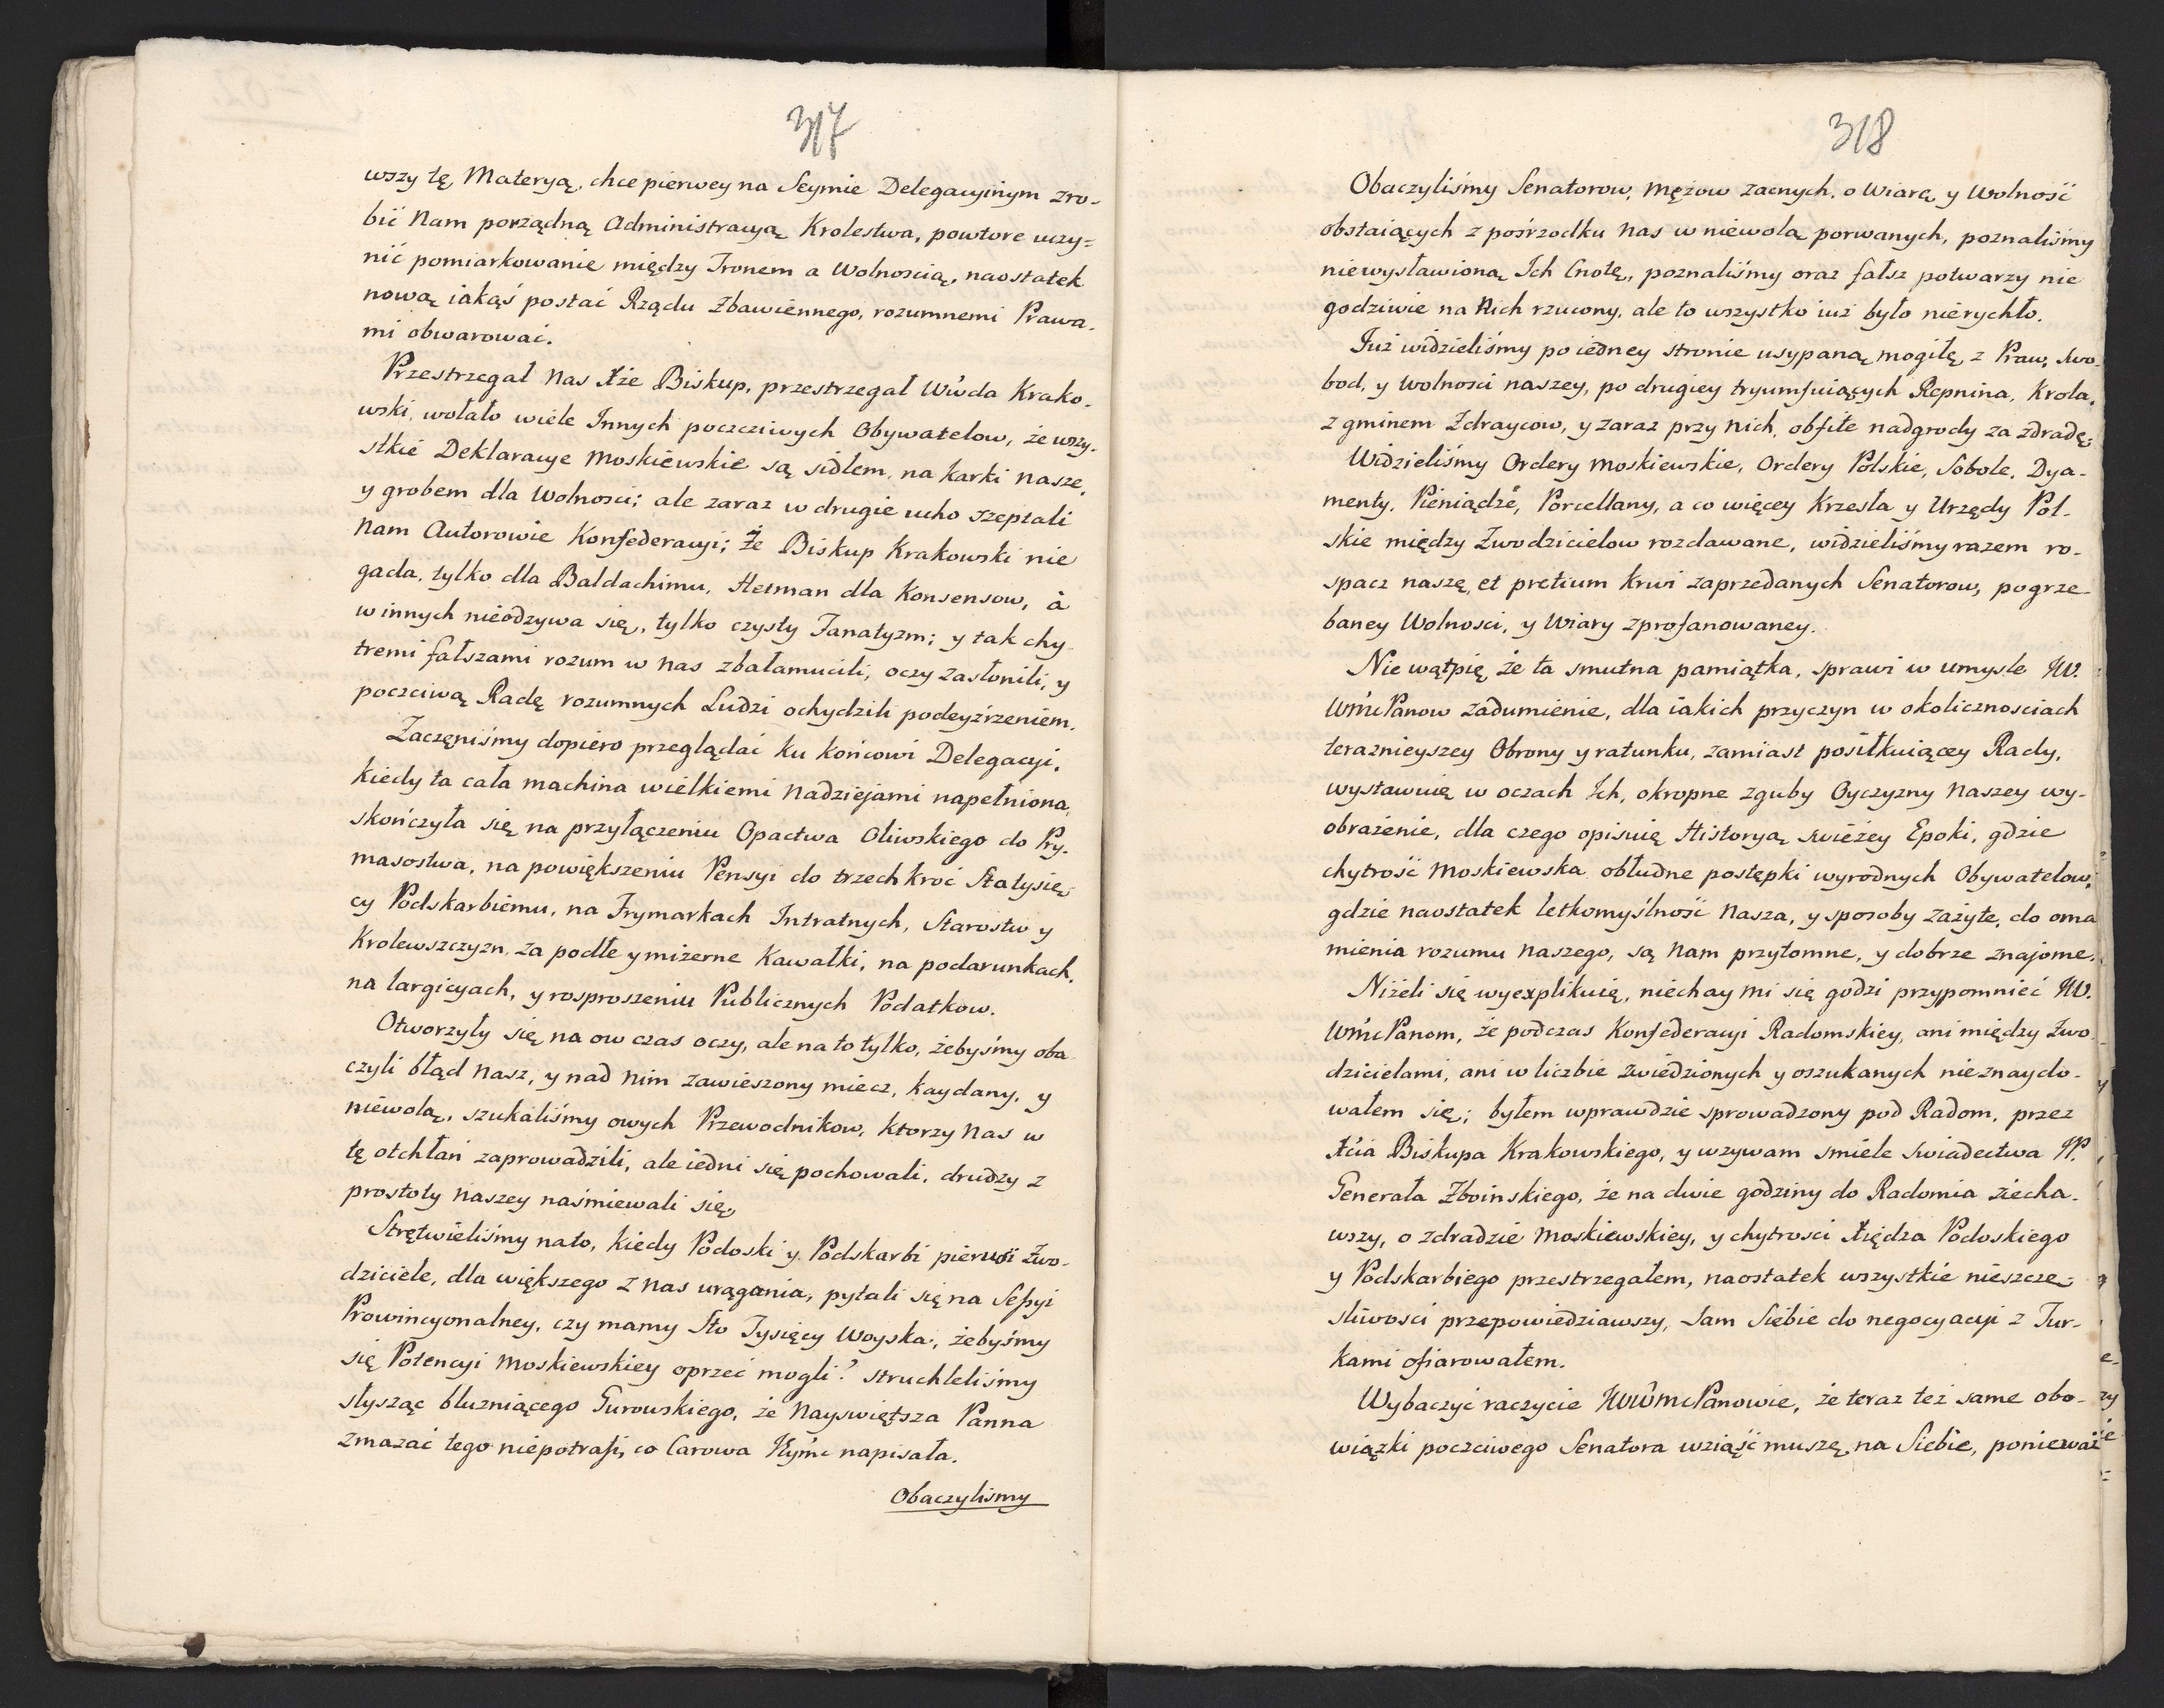 317
wszy tę Materyą, chce pierwey na Seymie Delegacyinym zro-
bić Nam porządną Administracyą Krolestwa, powtore uczy=
nić pomiarkowanie między Tronem a Wolnoscią, naostatek
nową iakąś postać Rządu Zbawiennego, rozumnemi Prawa-
mi obwarować.
Przestrzegał Nas Xże Biskup, przestrzegał Wwda Krako-
wski, wołało wiele Innych poczciwych Obywatelow, że wszy-
stkie Deklaracye Moskiewskie są sidłem, na karki nasze,
y grobem dla Wolnosci; ale zaraz w drugie ucho szeptali
Nam Autorowie Konfederacyi; Że Biskup Krakowski nie
gada, tylko dla Baldachimu, Hetman dla Konsensow, à
w innych nieodzywa się, tylko czysty Fanatyzm; y tak chy-
tremi fałszami rozum w Nas zbałamucili, oczy zasłonili, y
poczciwą Radę rozumnych Ludzi ochydzili podeyźrzeniem.
Zaczęnismy dopiero przeglądać ku końcowi Delegacyi,
kiedy ta cała machina wielkiemi Nadziejami napełniona,
skończyła się na przyłączeniu Opactwa Oliwskiego do Pry-
masostwa, na powiększeniu Pensyi do trzech kroć Stotysię-
cy Podskarbiemu, na Frymarkach Intratnych, Starostw y
Krolewszczyzn, za podłe y mizerne Kawałki, na podarunkach,
na largicyach, y rosproszeniu Publicznych Podatkow.
Otworzyły się na ow czas oczy, ale na to tylko, żebyśmy oba-
czyli błąd Nasz, y nad nim zawieszony miecz, kaydany, y
niewolą, szukaliśmy owych Przewodnikow, ktorzy Nas w
tę otchłań zaprowadzili, ale iedni się pochowali, drudzy z
prostoty Naszey naśmiewali się.
Strętwieliśmy na to, kiedy Podoski y Podskarbi pierwsi Zwo-
dziciele, dla większego z Nas urągania, pytali się na Sessyi
Prowincyonalney, czy mamy Sto Tysięcy Woyska, żebyśmy
się Potencyi Moskiewskiey oprzeć mogli? struchleliśmy
słysząc bluzniącego Gurowskiego, że Nayswiętsza Panna
zmazać tego niepotrafi, co Carowa Jeymć napisała.
Obaczylismy
318
Obaczyliśmy Senatorow, Mężow zacnych, o Wiarę y Wolność
obstaiących z pośrzodku Nas w niewolą porwanych, poznaliśmy
niewysławioną Ich Cnotę, poznaliśmy oraz fałsz potwarzy nie
godziwie na Nich rzucony, ale to wszystko iuż było nierychło.
Już widzieliśmy po iedney stronie usypaną mogiłę, z Praw, Swo-
bod, y Wolnosci naszey, po drugiey tryumfuiących Repnina, Krola,
z gminem Zdraycow, y zaraz przy nich, obfite nadgrody za zdradę;
Widzieliśmy Ordery Moskiewskie, Ordery Polskie, Sobole, Dya-
menty, Pieniądze, Porcellany, a co więcey Krzesła y Urzędy Pol-
skie między Zwodzicielow rozdawane, widzieliśmy razem ro-
spacz naszę, et pretium krwi zaprzedanych Senatorow, pogrze-
baney Wolnosci, y Wiary zprofanowaney.
Nie wątpię, że ta smutna pamiątka, sprawi w umysle JW.
WmcPanow zadumienie, dla iakich przyczyn w okolicznosciach
teraznieyszey Obrony y ratunku, zamiast posiłkuiącey Rady,
wystawuię w oczach Ich, okropne zguby Oyczyzny Naszey wy-
obrażenie, dla czego opisuię Historyą swieżey Epoki, gdzie
chytrość Moskiewska, obłudne postępki wyrodnych Obywatelow,
gdzie naostatek letkomyślność Nasza, y sposoby zażyte, do oma
mienia rozumu Naszego, są Nam przytomne, y dobrze znajome.
Niżeli się wyexplikuię, niechay mi się godzi przypomnieć JW.
WmcPanom, że podczas Konfederacyi Radomskiey, ani między Zwo-
dzicielami, ani w liczbie zwiedzionych y oszukanych nie znaydo-
wałem się; byłem wprawdzie sprowadzony pod Radom, przez
Xcia Biskupa Krakowskiego, y wzywam smiele swiadectwa JP.
Generała Zboinskiego, że na dwie godziny do Radomia ziecha-
wszy, o zdradzie Moskiewskiey, y chytrosci Xiędza Podoskiego
y Podskarbiego przestrzegałem, naostatek wszystkie nieszczę-
sliwosci przepowiedziawszy, sam Siebie do negocyacyi z Tur-
kami ofiarowałem.
Wybaczyć raczycie JWWmcPanowie, że teraz też same obo-
wiązki poczciwego Senatora wziąść muszę na Siebie, ponieważ